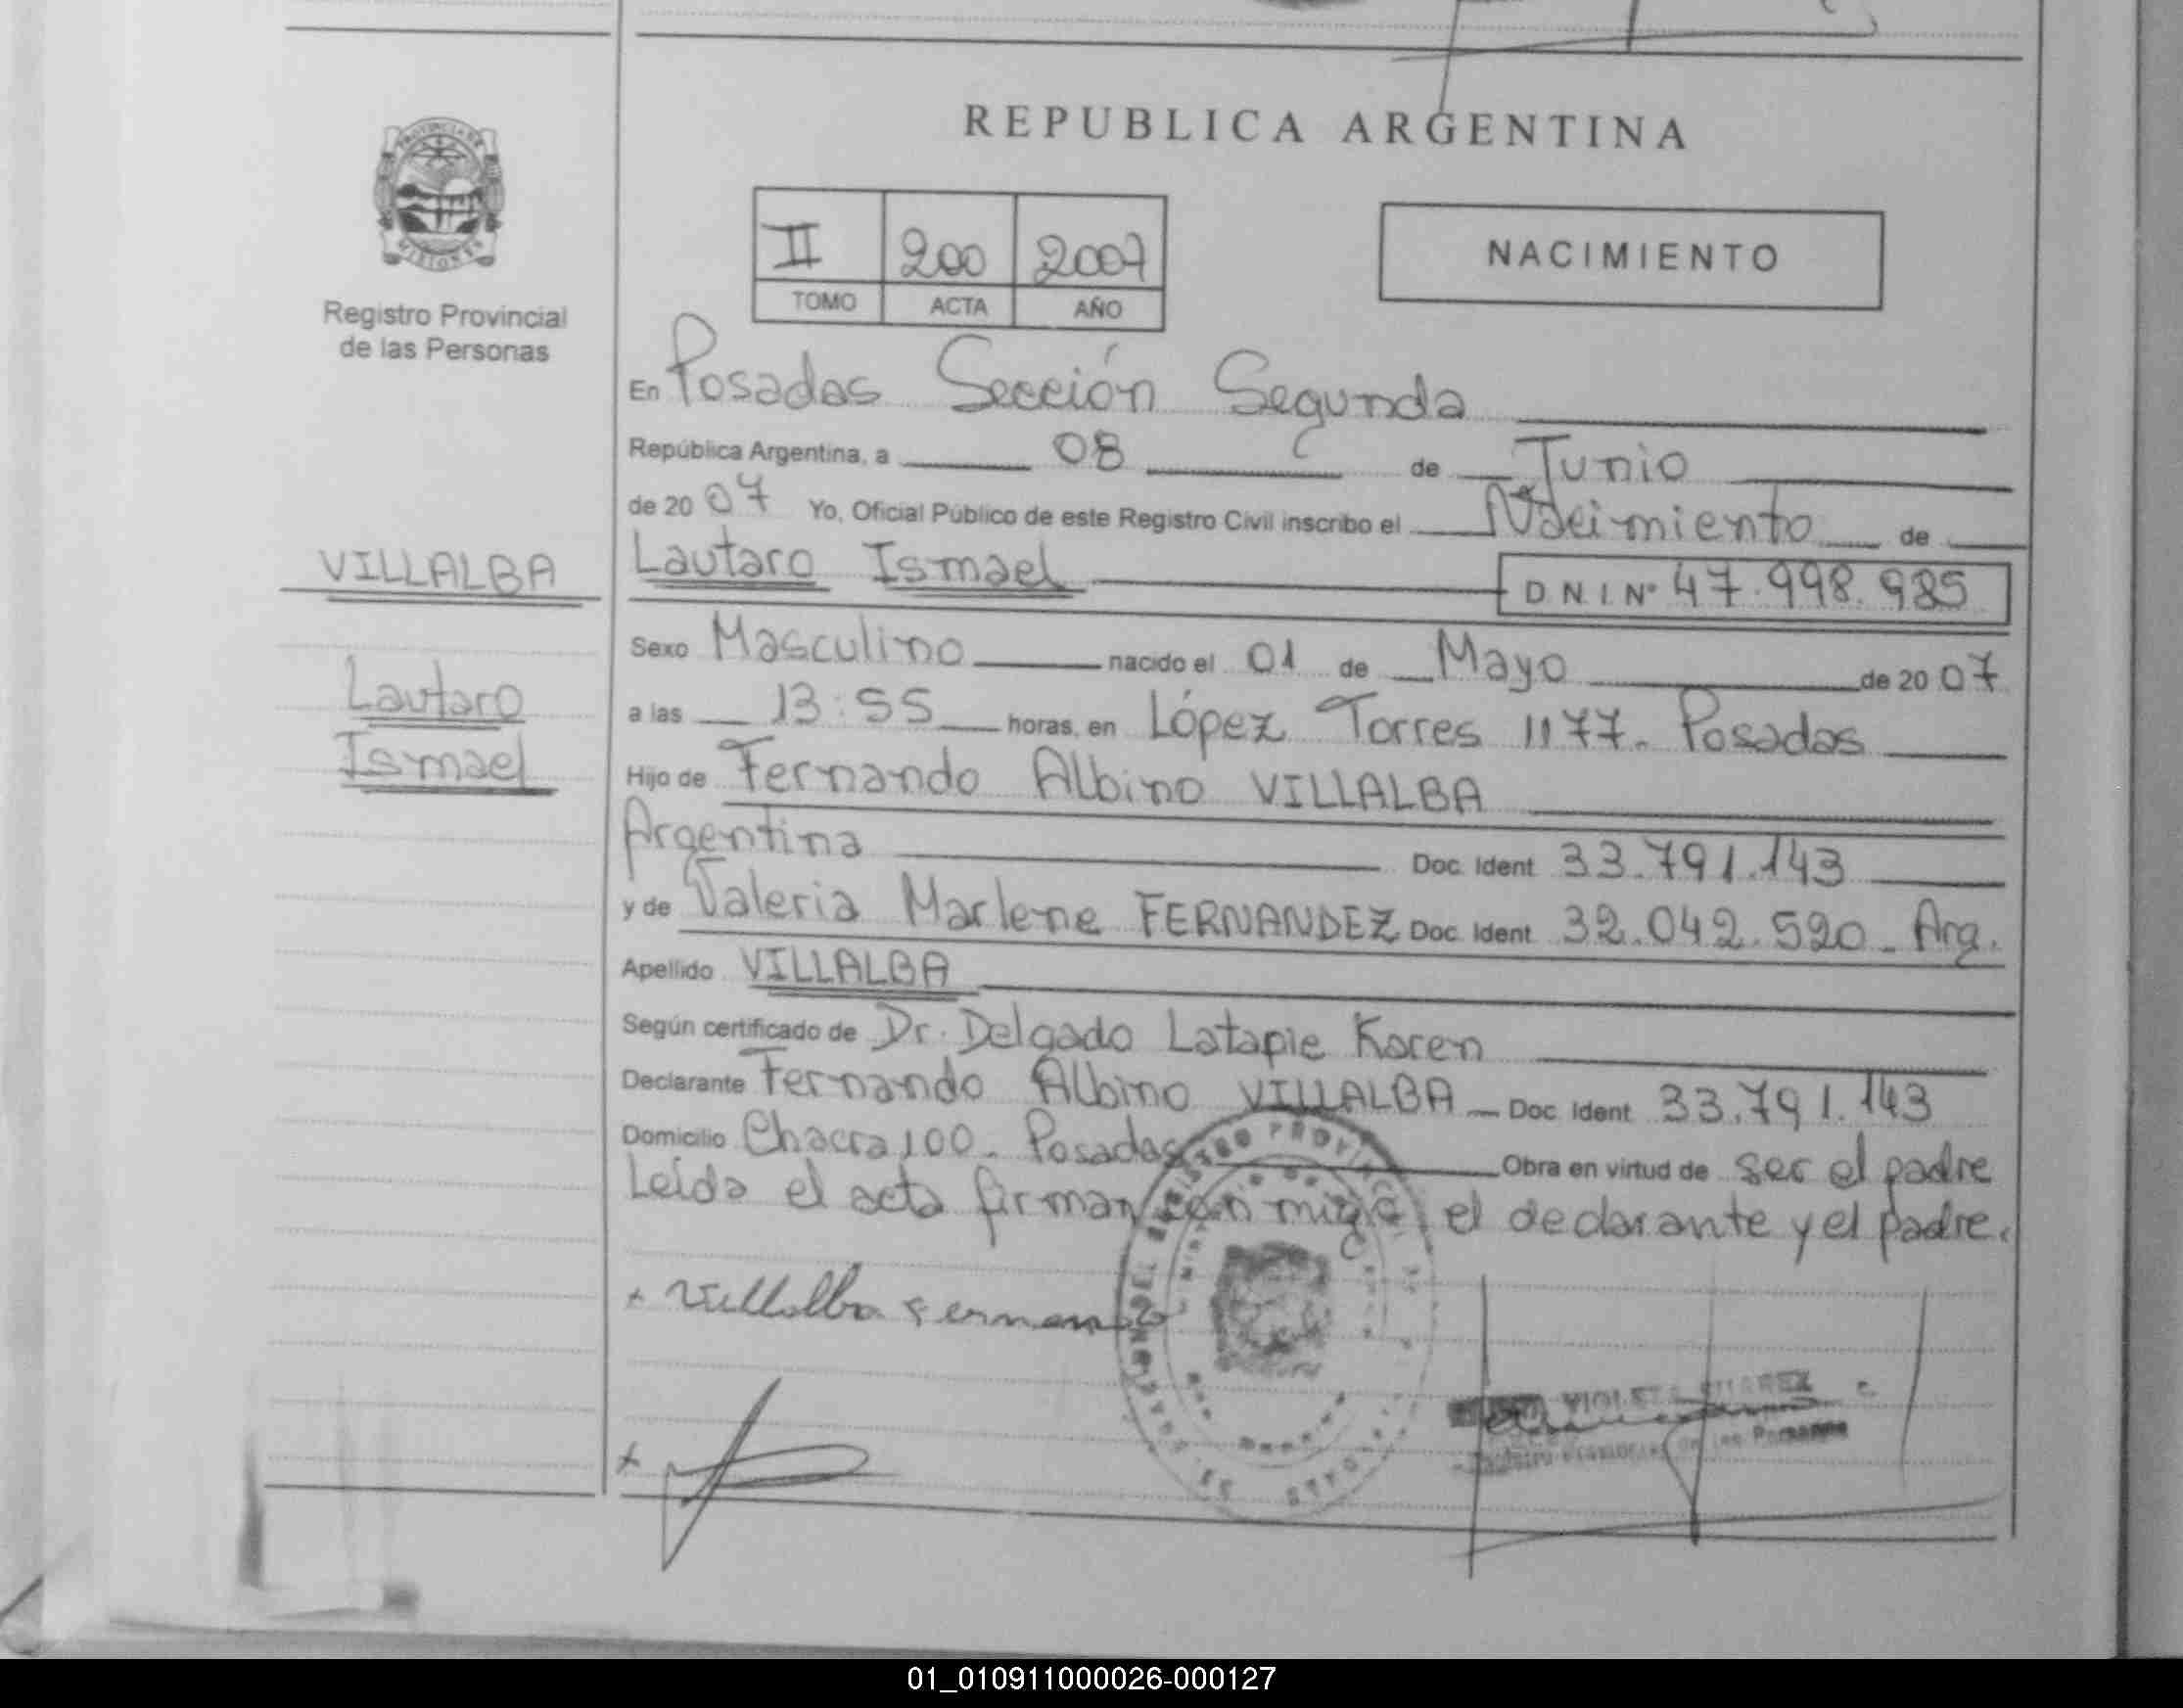 PROVINCIA DE
MISIONES
Registro Provincial
de las Personas
VILLALBA
Lautaro
Ismael
REPUBLICA ARGENTINA
II 200 2007
TOMO ACTA AÑO
NACIMIENTO
En Posadas Sección Segunda
República Argentina, a 08 de Junio
de 2007 Yo, Oficial Público de este Registro Civil inscribo el Nacimiento de
Lautaro Ismael D.N.I. Nº 47.998.985
Sexo Masculino nacido el 01 de Mayo de 2007
a las 13:55 horas, en López Torres 1177. Posadas
Hijo de Fernando Albino VILLALBA
Argentina Doc. Ident 33.791.143
y de Valeria Marlene FERNANDEZ Doc. Ident 32.042.520 - Arg.
Apellido VILLALBA
Según certificado de Dr. Delgado Latapie Karen
Declarante Fernando Albino VILLALBA Doc. Ident 33.791.143
Domicilio Chacra 100. Posadas Obra en virtud de ser el padre
Leída el acta firman con migo el declarante y el padre.
+ Villalba Fernando
VIOLETA SUAREZ
Registro Provincial de las Personas
+
01_010911000026-000127